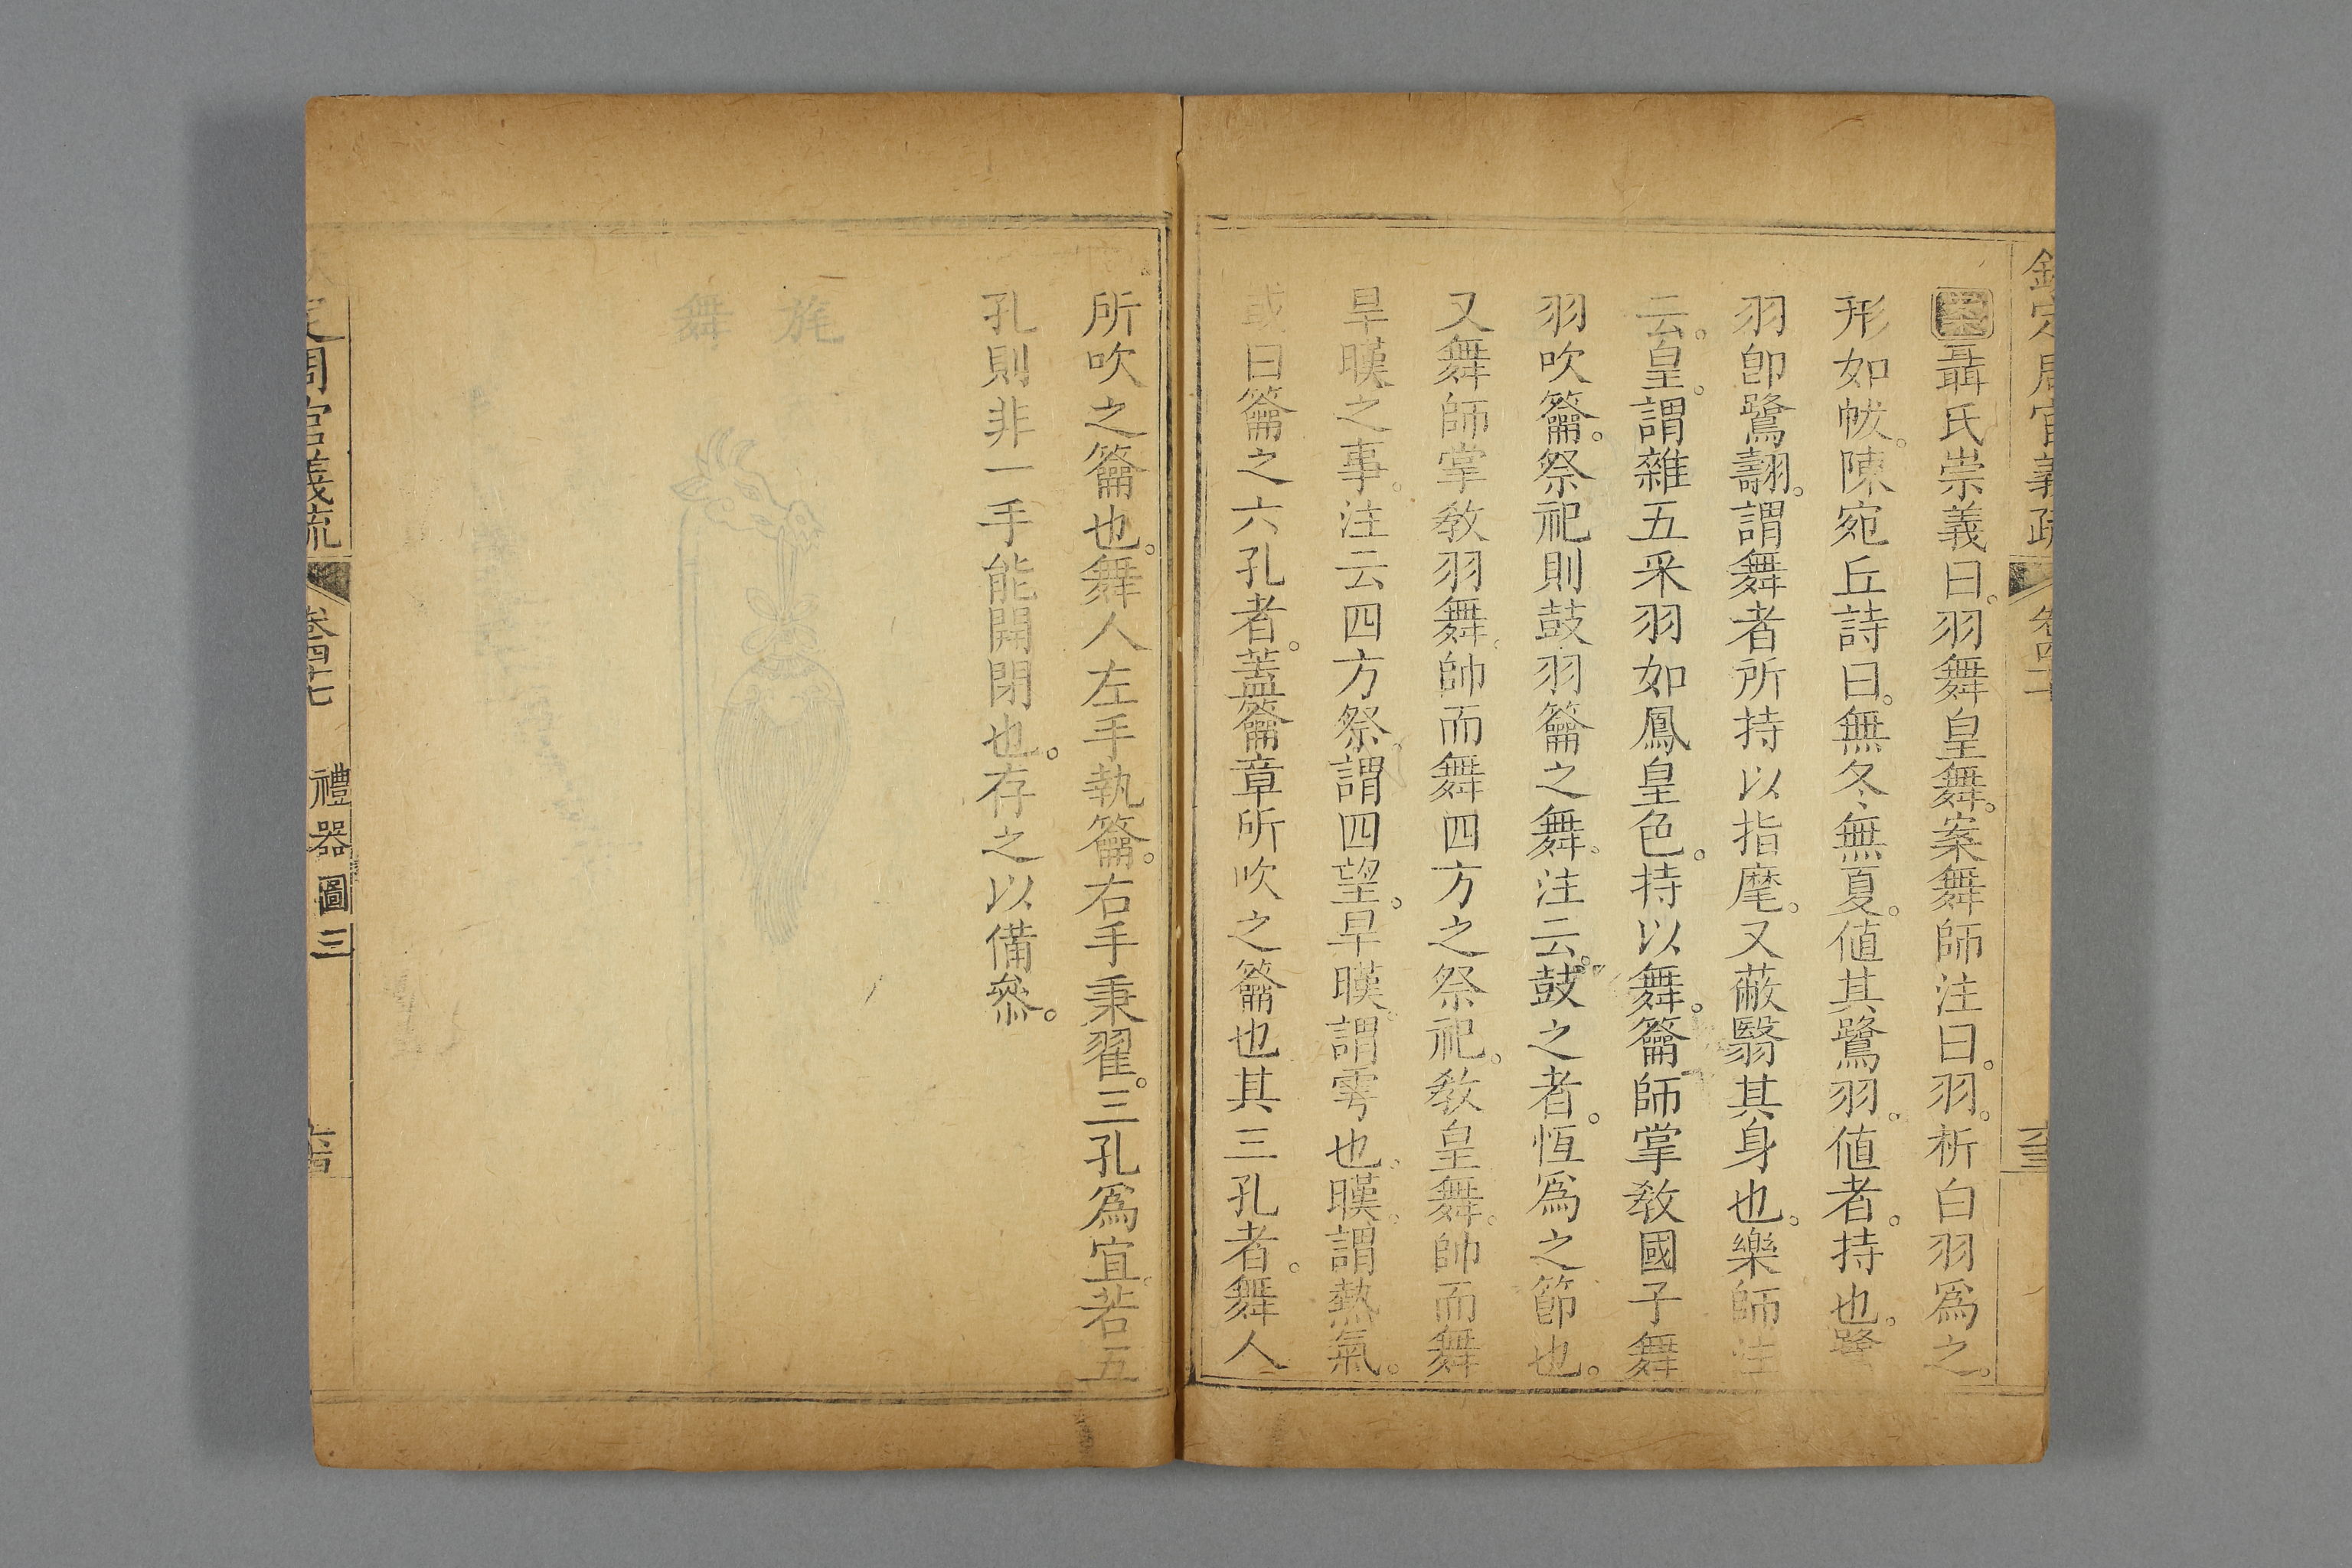 欽定周官義疏 卷四十
聶氏崇義曰。羽舞皇舞。案舞師注曰。羽。析白羽爲之。
形如帗。陳宛丘詩曰。無冬無夏。値其鷺羽。値者。持也。鷺
羽卽鷺翿。謂舞者所持以指麾。又蔽翳其身也。樂師注
云。皇。謂雜五采羽如鳳皇色。持以舞。籥師掌敎國子舞
羽吹籥。祭祀則鼓羽籥之舞。注云。鼓之者。恆爲之節也。
又舞師掌敎羽舞。帥而舞四方之祭祀。敎皇舞。帥而舞
旱暵之事。注云四方祭。謂四望。旱暵。謂雩也。暵。謂熱氣。
或曰籥之六孔者。蓋籥章所吹之籥也其三孔者。舞人
所吹之籥也。舞人左手執籥。右手秉翟。三孔爲宜。若五
孔則非一手能開閉也。存之以備參。
旄
舞
定周官義疏 卷四十七 禮器圖三